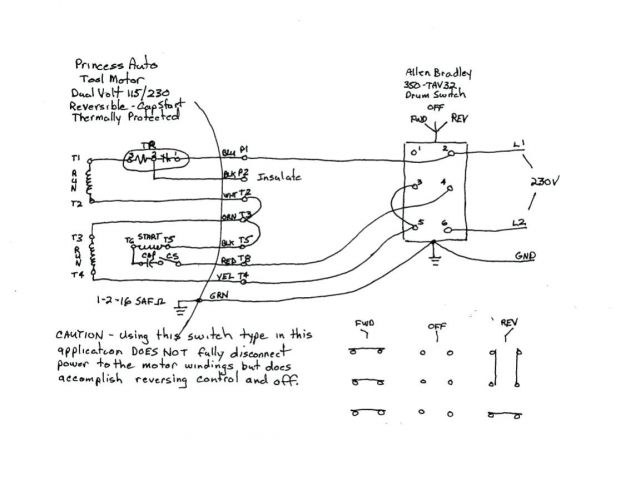 Princess Auto
Tool Motor
Dual Volt 115/230
Reversible - Cap Start
Thermally Protected
Allen Bradley
350-TAV32
Drum Switch
OFF
FWD REV
T1
RUN
T2
TP
3 2 1
BLU P1
BLK P2 Insulate
WHT T2
ORN T3
T3
RUN
T4
T6 START T5
CAP CS
BLK T5
RED T8
YEL T4
GRN
1 2
3 4
5 6
L1
230V
L2
GND
1-2-16 SAF
CAUTION - Using this switch type in this
application DOES NOT fully disconnect
power to the motor windings but does
accomplish reversing control and off.
FWD OFF REV